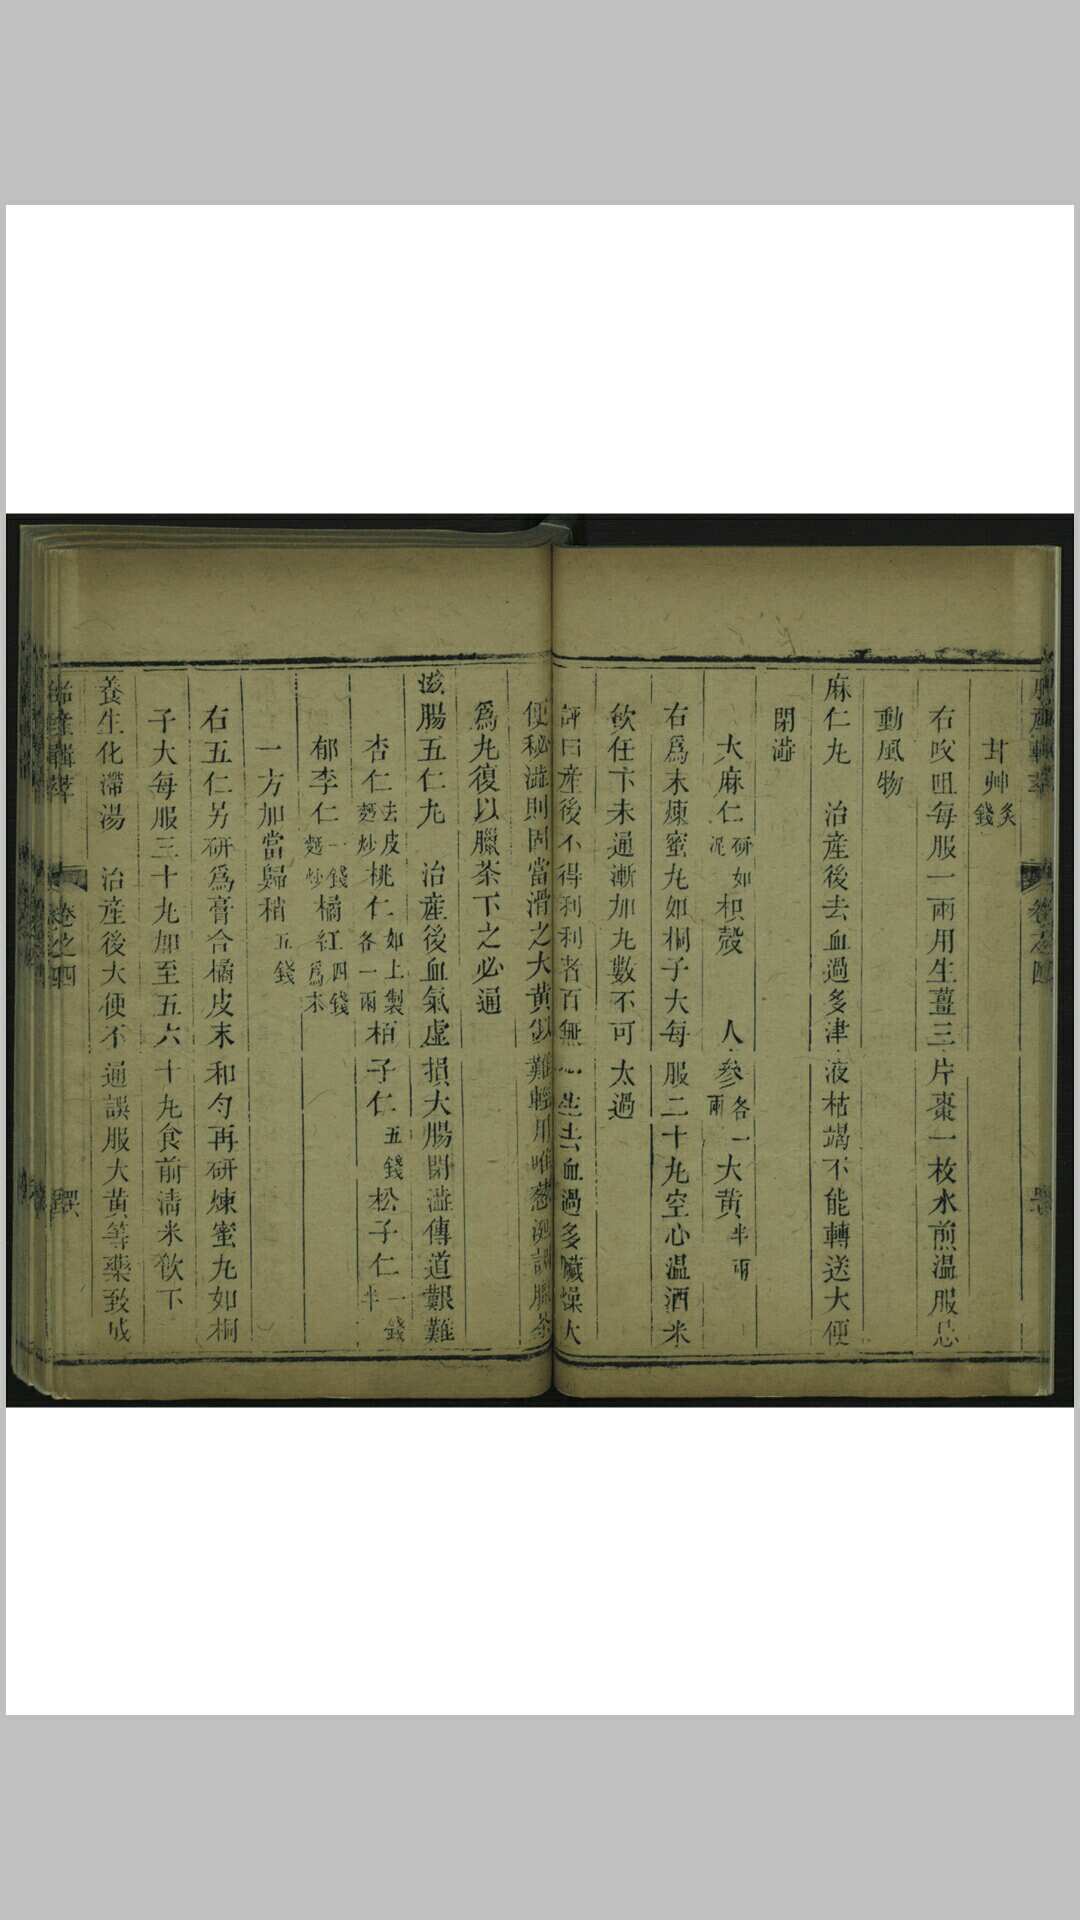 甘艸炙錢
右㕮咀每服一兩用生薑三片棗一枚水煎温服忌
動風物
麻仁丸　治產後去血過多津液枯竭不能轉送大便
閉澁
大麻仁研如泥　枳殼　人參各一兩　大黄半兩
右爲末煉蜜丸如桐子大每服二十丸空心温酒米
飲任下未通漸加丸數不可太過
評曰產後不得利利者百無一生去血過多臟燥大
便秘澁則固當滑之大黄似難輕用唯葱涎調臘茶
爲丸復以臘茶下之必通
滋腸五仁丸　治產後血氣虛損大腸閉澁傳道艱難
杏仁去皮麩炒　桃仁如上製各一兩　柏子仁五錢　松子仁一錢半
郁李仁一錢麩炒　橘紅四錢爲末
一方加當歸稍五錢
右五仁另研爲膏合橘皮末和勻再研煉蜜丸如桐
子大每服三十丸加至五六十丸食前清米飲下
養生化滯湯　治產後大便不通誤服大黄等藥致成
卷之四